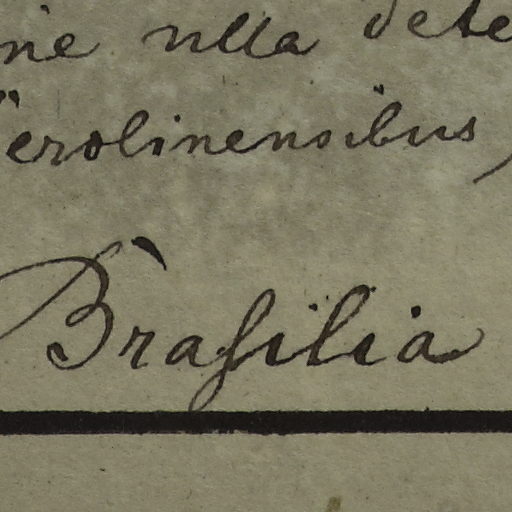 ne ulla dete
erolinensibus,
Brasilia